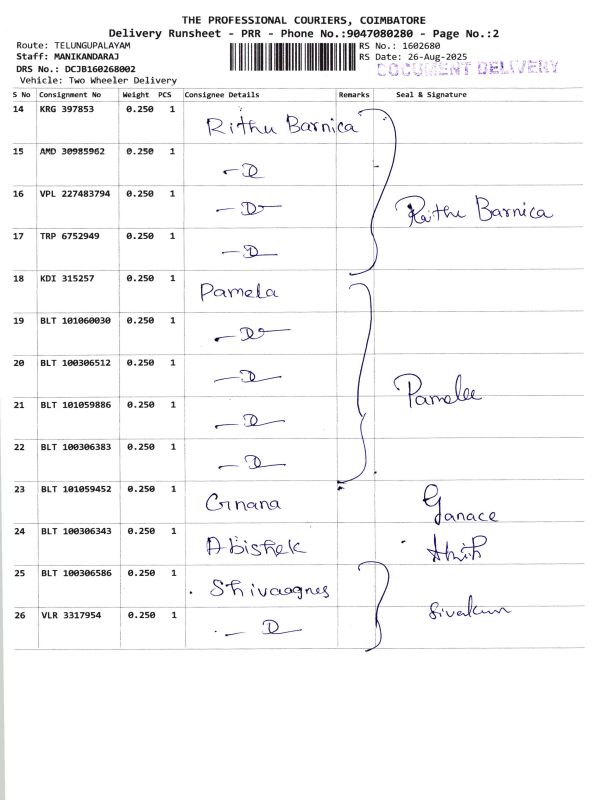 THE PROFESSIONAL COURIERS, COIMBATORE
Delivery Runsheet - PRR - Phone No.:9047080280 - Page No.:2
Route: TELUNGUPALAYAM RS No.: 1602680
Staff: MANIKANDARAJ RS Date: 26-Aug-2025
DRS No.: DCJB160268002 DOCUMENT DELIVERY
Vehicle: Two Wheeler Delivery
S No Consignment No Weight PCS Consignee Details Remarks Seal & Signature
14 KRG 397853 0.250 1 Rithu Barnica
15 AMD 30985962 0.250 1 -D
16 VPL 227483794 0.250 1 -D- Rithu Barnica
17 TRP 6752949 0.250 1 -D-
18 KDI 315257 0.250 1 Pamela
19 BLT 101060030 0.250 1 -D-
20 BLT 100306512 0.250 1 -D-
21 BLT 101059886 0.250 1 -D- Pamela
22 BLT 100306383 0.250 1 -D-
23 BLT 101059452 0.250 1 Gnana
24 BLT 100306343 0.250 1 Abishek
25 BLT 100306586 0.250 1
26 VLR 3317954 0.250 1 -D-